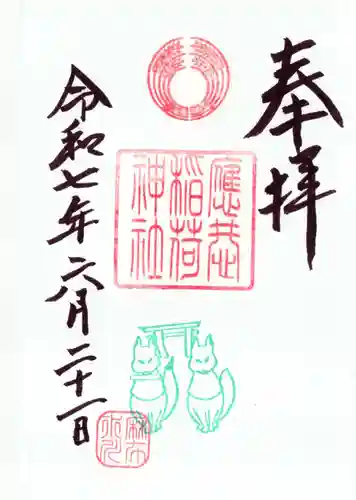 奉拝
應恭稲荷神社
令和七年六月二十一日